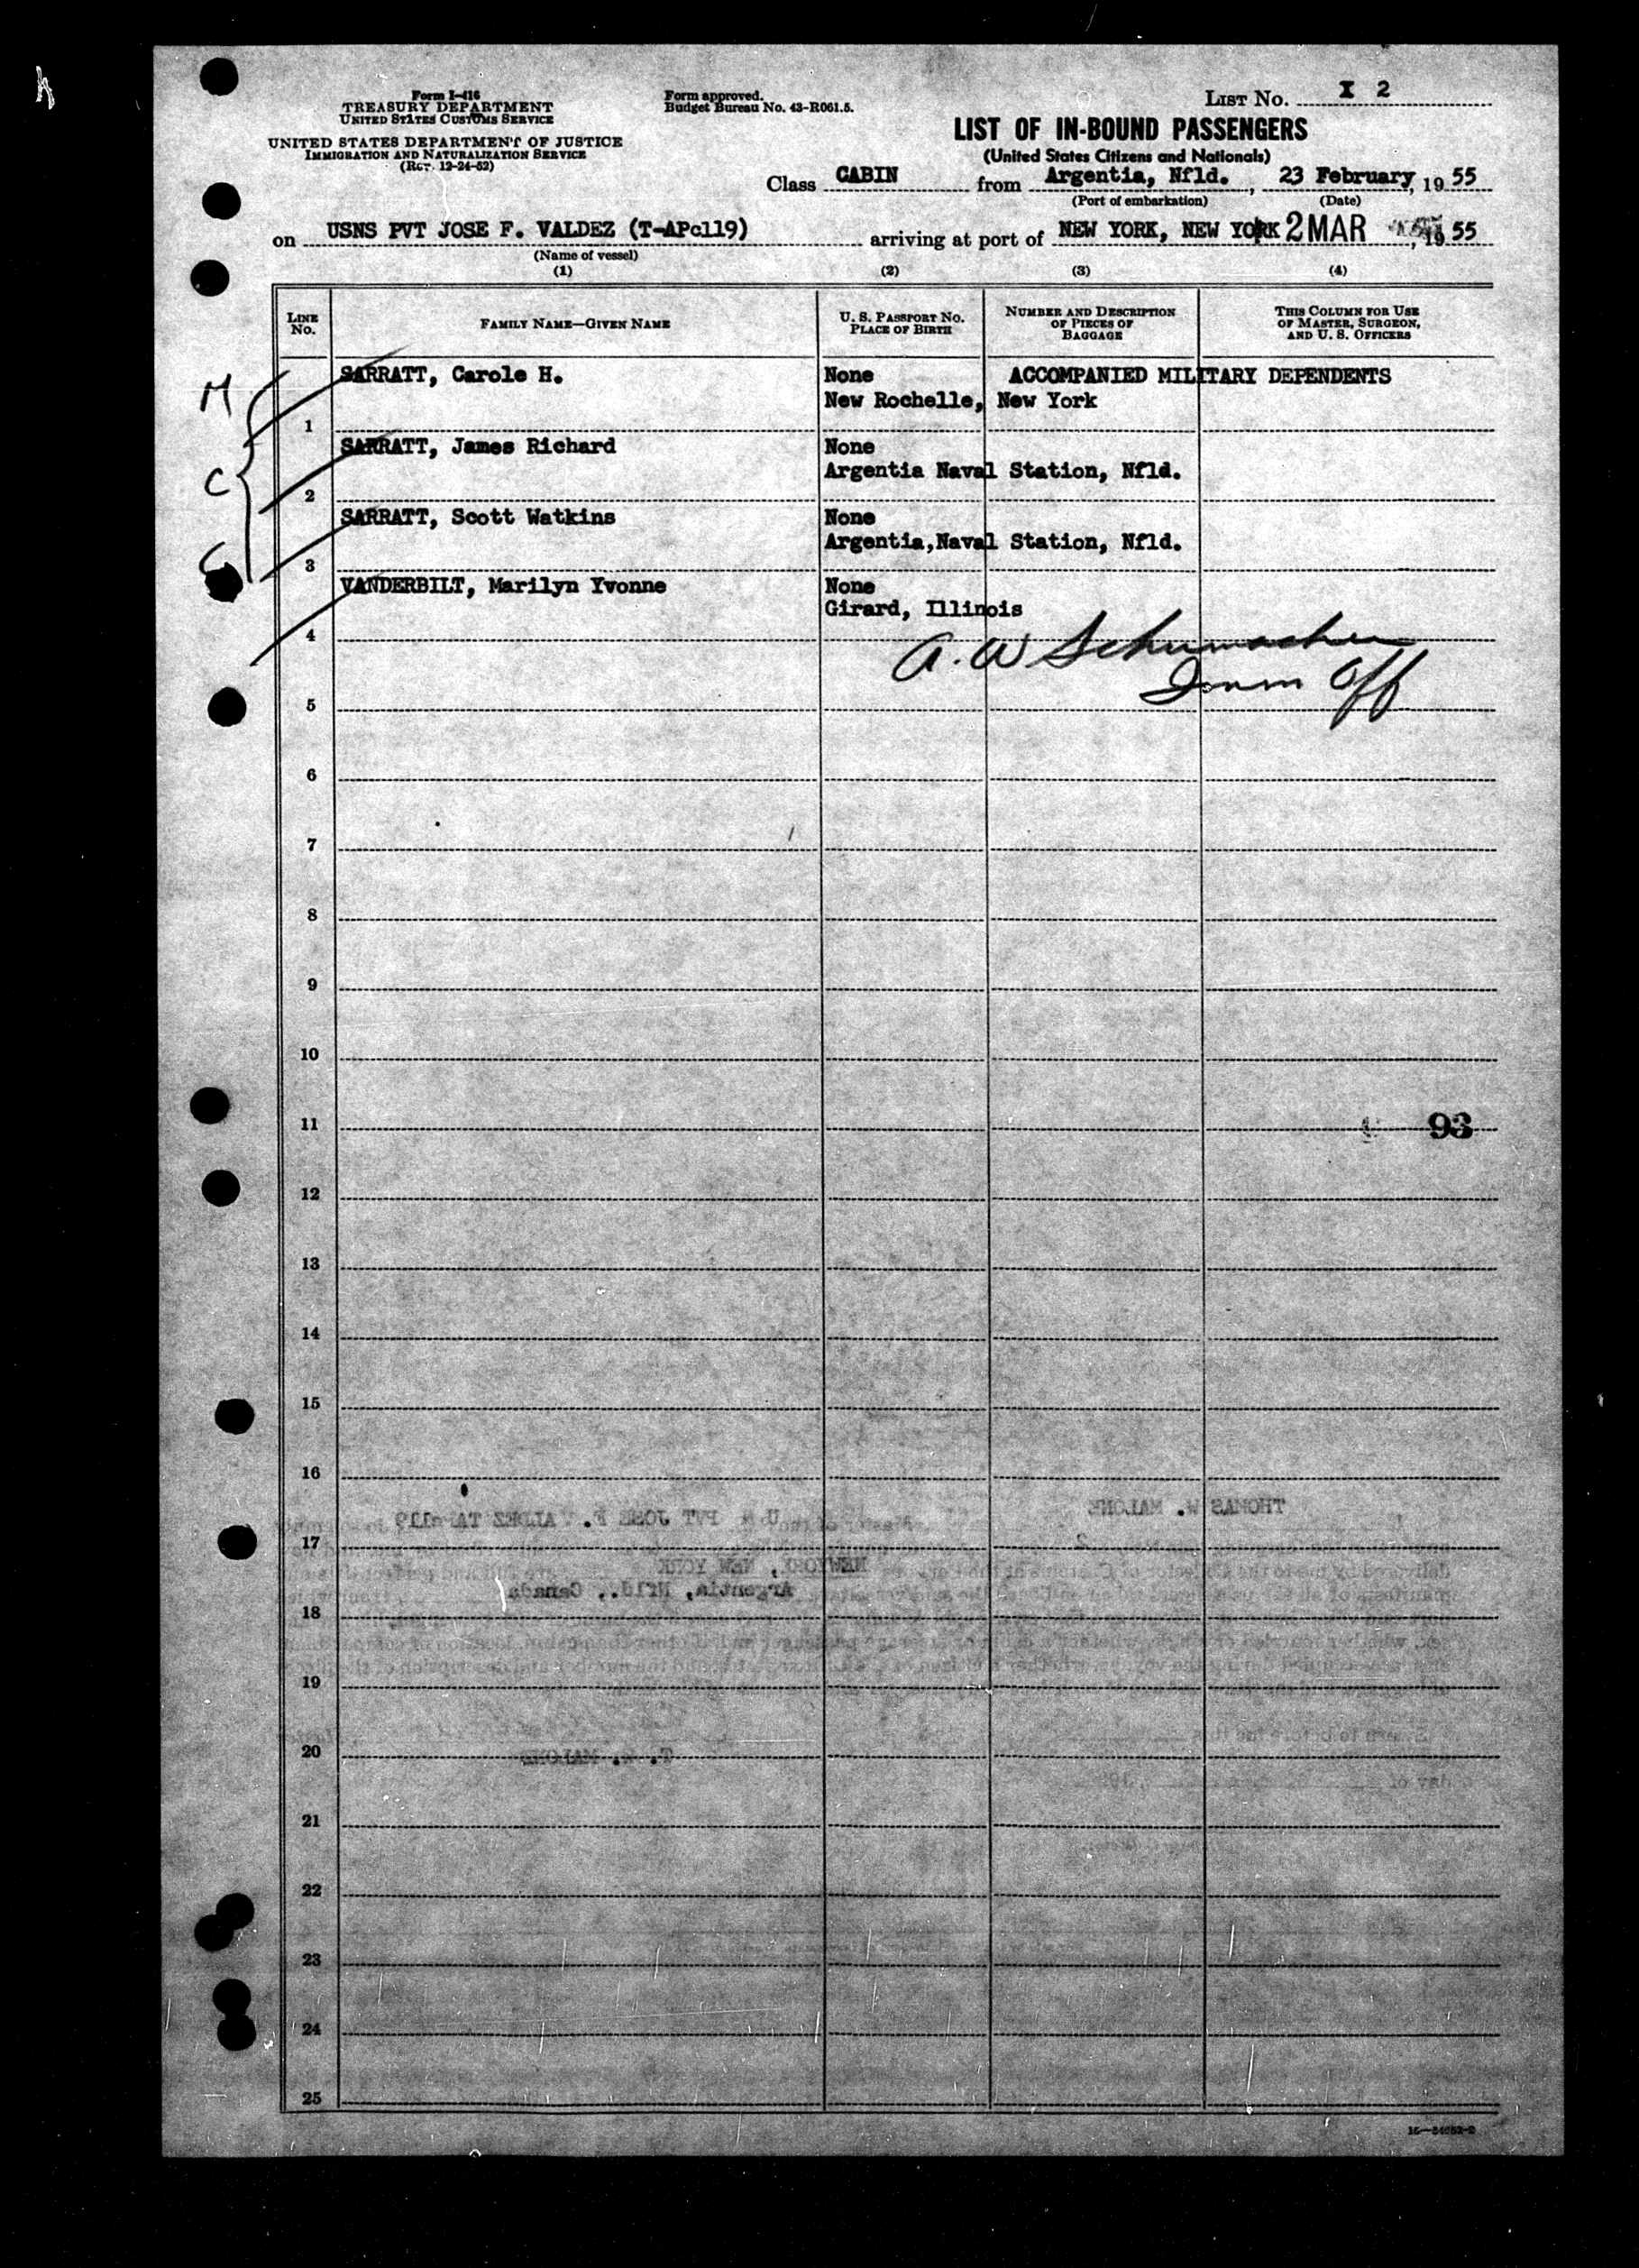 Form I-416
TREASURY DEPARTMENT
UNITED STATES CUSTOMS SERVICE
UNITED STATES DEPARTMENT OF JUSTICE
IMMIGRATION AND NATURALIZATION SERVICE
(Rev. 12-24-52)
Form approved.
Budget Bureau No. 43-R061.5.
LIST NO. I 2
LIST OF IN-BOUND PASSENGERS
(United States Citizens and Nationals)
Class CABIN from Argentia, Nfld., 23 February, 1955
(Port of embarkation) (Date)
on USNS PVT JOSE F. VALDEZ (T-APc119) arriving at port of NEW YORK, NEW YORK 2 MAR, 1955
(Name of vessel)
(1) (2) (3) (4)
LINE NO. FAMILY NAME—GIVEN NAME U. S. PASSPORT NO. PLACE OF BIRTH NUMBER AND DESCRIPTION OF PIECES OF BAGGAGE THIS COLUMN FOR USE OF MASTER, SURGEON, AND U. S. OFFICERS
M SARRATT, Carole H. None ACCOMPANIED MILITARY DEPENDENTS
1 New Rochelle, New York
C SARRATT, James Richard None
2 Argentia Naval Station, Nfld.
C SARRATT, Scott Watkins None
3 Argentia,Naval Station, Nfld.
VANDERBILT, Marilyn Yvonne None
4 Girard, Illinois
A. W Schumacher
5 Imm Off
6
7
8
9
10
11 93
12
13
14
15
16
THOMAS W. MALONE
PVT JOSE F. VALDEZ
17
NEW YORK
Argentia, Nfld., Canada
18
19
20
T. W. MALONE
21
22
23
24
25